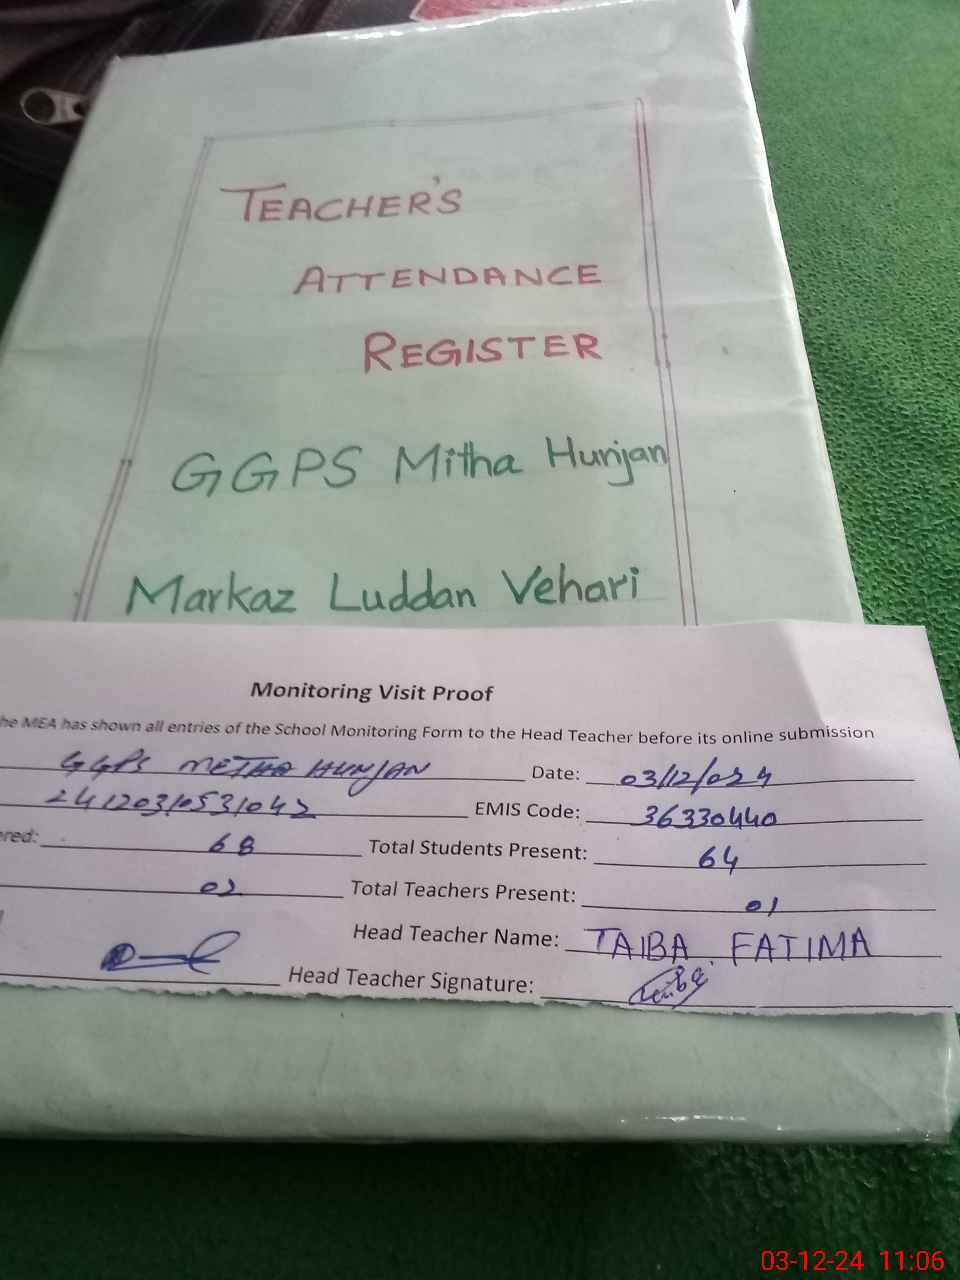 TEACHER'S
ATTENDANCE
REGISTER
GGPS Mitha Hunjan
Markaz Luddan Vehari
Monitoring Visit Proof
he MEA has shown all entries of the School Monitoring Form to the Head Teacher before its online submission
GGPS METHA HUNJAN Date: 03/12/024
24120310531042 EMIS Code: 36330440
ered: 68 Total Students Present: 64
02 Total Teachers Present: 01
Head Teacher Name: TAIBA FATIMA
Head Teacher Signature:
03-12-24 11:06